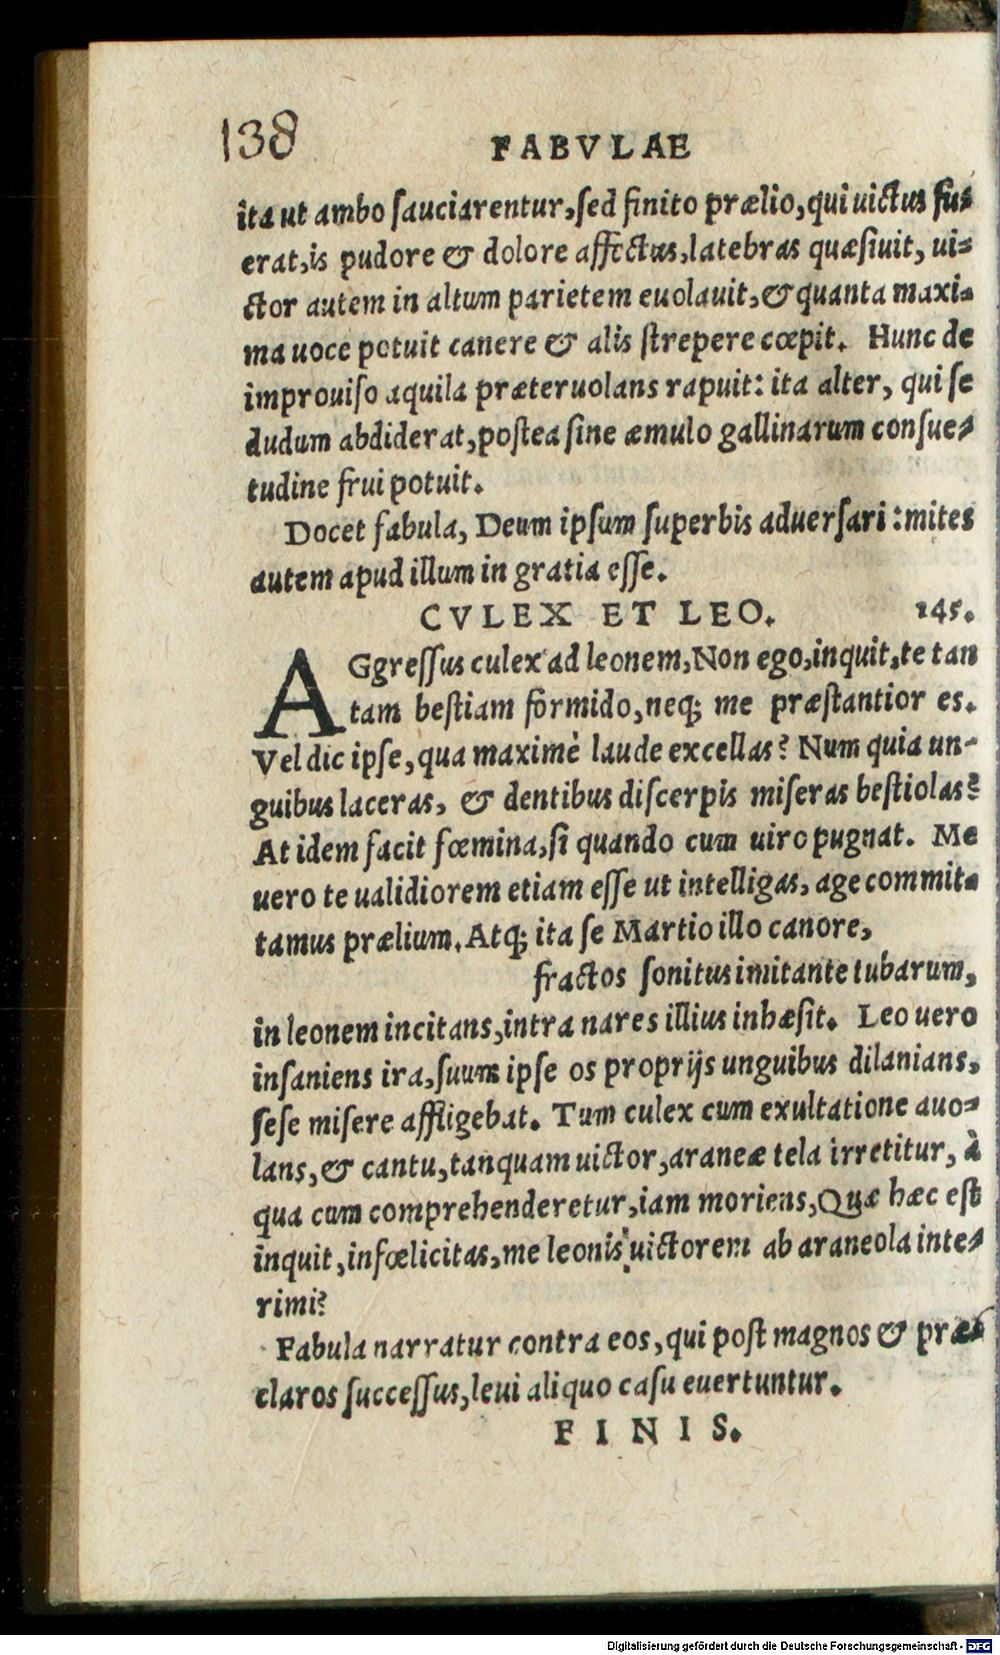 138
FABVLAE
ita ut ambo ſauciarentur, ſed finito prælio, qui uictus fu-
erat, is pudore & dolore affectus, latebras quæſiuit, ui-
ctor autem in altum parietem euolauit, & quanta maxi-
ma uoce potuit canere & alis ſtrepere cœpit. Hunc de
improuiſo aquila præteruolans rapuit: ita alter, qui ſe
dudum abdiderat, poſtea ſine æmulo gallinarum conſue-
tudine frui potuit.
Docet fabula, Deum ipſum ſuperbis aduerſari: mites
autem apud illum in gratia eſſe.
CVLEX ET LEO. 245.
AGgreſſus culex ad leonem, Non ego, inquit, te tan
tam beſtiam formido, neq; me præſtantior es.
Vel dic ipſe, qua maximè laude excellas? Num quia un-
guibus laceras, & dentibus diſcerpis miſeras beſtiolas?
At idem facit fœmina, ſi quando cum uiro pugnat. Me
uero te ualidiorem etiam eſſe ut intelligas, age commit-
tamus prælium. Atq; ita ſe Martio illo canore,
fractos ſonitus imitante tubarum,
in leonem incitans, intra nares illius inhæſit. Leo uero
inſaniens ira, ſuum ipſe os proprijs unguibus dilanians,
ſeſe miſere affligebat. Tum culex cum exultatione auo-
lans, & cantu, tanquam uictor, araneæ tela irretitur, à
qua cum comprehenderetur, iam moriens, Quæ hæc eſt
inquit, infœlicitas, me leonis uictorem ab araneola inte-
rimi?
Fabula narratur contra eos, qui poſt magnos & præ-
claros ſucceſſus, leui aliquo caſu euertuntur.
FINIS.
Digitalisierung gefördert durch die Deutsche Forschungsgemeinschaft - DFG